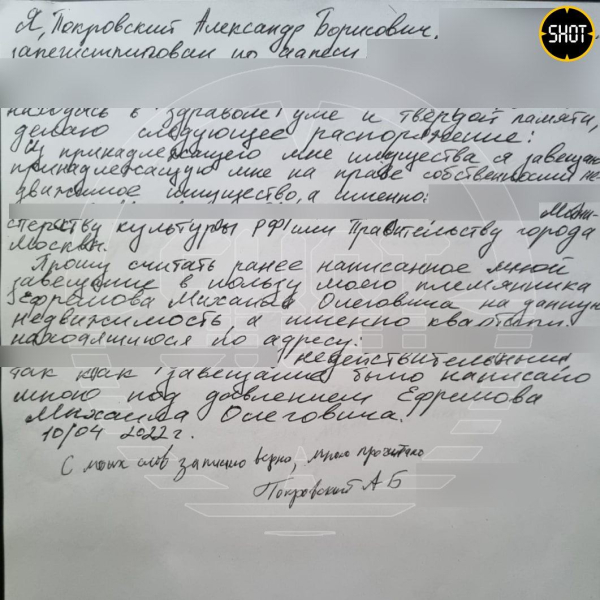 SHOT
Я, Покровский Александр Борисович,
зарегистрирован по адресу
находясь в здравом уме и твёрдой памяти,
делаю следующее распоряжение:
Из принадлежащего мне имущества я завещаю
принадлежащую мне на праве собственности не-
движимое имущество, а именно:
Мини-
стерству культуры РФ или Правительству города
Москвы.
Прошу считать ранее написанное мной
завещание в пользу моего племянника
Ефремова Михаила Олеговича на данную
недвижимость а именно квартиры
находящиюся по адресу:
недействительным,
так как завещание было написано
мною под давлением Ефремова
Михаила Олеговича.
10/04 2022 г.
С моих слов записано верно, мною прочитано
Покровский А Б